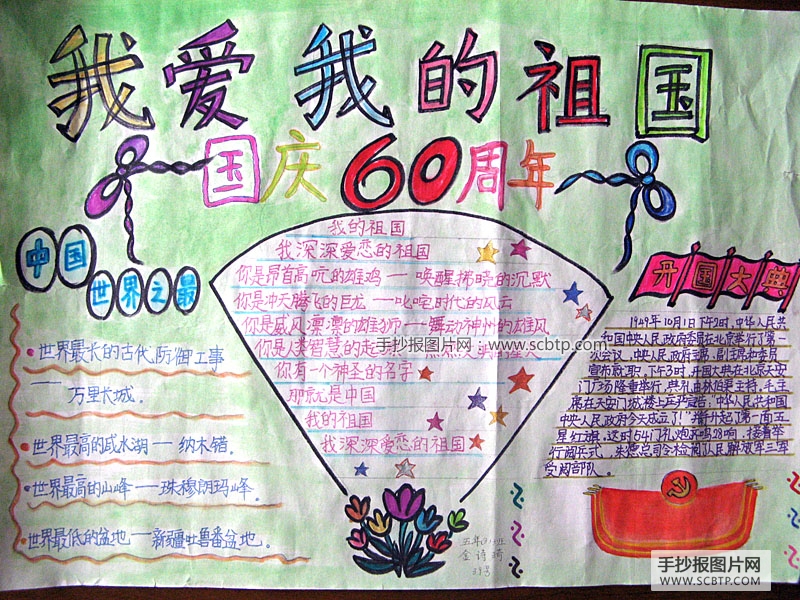 我爱我的祖国
国庆60周年
中国
世界之最
世界最长的古代防御工事
——万里长城.
世界最高的咸水湖——纳木错.
世界最高的山峰——珠穆朗玛峰.
世界最低的盆地——新疆吐鲁番盆地.
我的祖国
我深深爱恋的祖国
你是昂首高吭的雄鸡——唤醒拂晓的沉默
你是冲天腾飞的巨龙——叱咤时代的风云
你是威风凛凛的雄狮——舞动神州的雄风
你是人类智慧的起
手抄报图片网:www.scbtp.com
你有一个神圣的名字
那就是中国
我的祖国
我深深爱恋的祖国
五年(1)班
金诗琦
开国大典
1949年10月1日下午2时,中华人民共
和国中央人民政府委员在北京举行了第一
次会议,中央人民政府主席、副主席和委员
宣布就职,下午3时,开国大典在北京天安
门广场隆重举行,典礼由林伯渠主持,毛主
席在天安门城楼上庄严宣告:“中华人民共和国
中央人民政府今天成立了!”并升起了第一面五
星红旗,这时54门礼炮齐鸣28响,接着举
行阅兵式,朱德总司令检阅了人民解放军三军
受阅部队.
手抄报图片网
WWW.SCBTP.COM